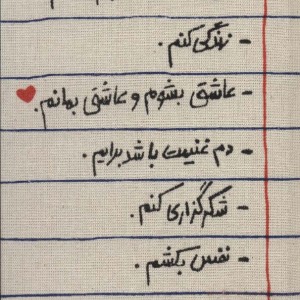 - زندگی کنم.
- عاشق بشوم و عاشق بمانم.
- دم غنیمت باشد برایم.
- شکرگزاری کنم.
- نفس بکشم.